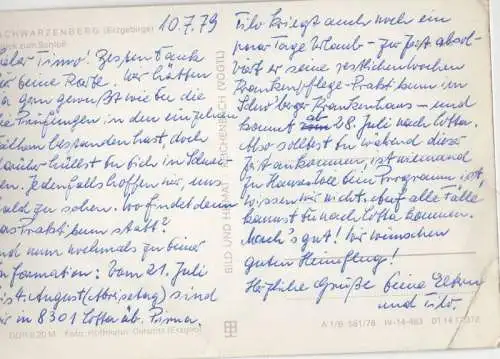 SCHWARZENBERG (Erzgebirge)
Blick zum Schloß
10.7.79
Lieber Timo! Besten Dank
für Deine Karte. Wir hätten
ja gern gewußt wie Du die
Prüfungen in den einzelnen
bestanden hast, doch
hüllst Du Dich in Schwei-
gen. Jedenfalls hoffen wir, uns
bald zu sehen. Wo findet denn
das Praktikum statt?
Und nun nochmals zu Deiner
Information: Vom 21. Juli
4. August (Abreisetag) sind
wir in 8301 Cotta üb. Pirna.
Tilo kriegt auch noch ein
paar Tage Urlaub – zur Zeit absol-
viert er seine restlichen Wochen
Krankenpflege-Praktikum im
Schw'berger Krankenhaus – und
kommt ab 28. Juli nach Cotta.
Also solltest Du während dieser
Zeit ankommen, ist niemand
zu Hause. Wie Dein Programm ist,
wissen wir nicht. Auf alle Fälle
kannst Du nach Cotta kommen.
Mach's gut! Wir wünschen
guten Heimflug!
Herzliche Grüße Deine Eltern
und Tilo.
BILD UND HEIMAT REICHENBACH (VOGTL)
DDR 0,20 M Foto: Hoffmann,
A 1/B 581/78 IV-14-483 01 14 17 312